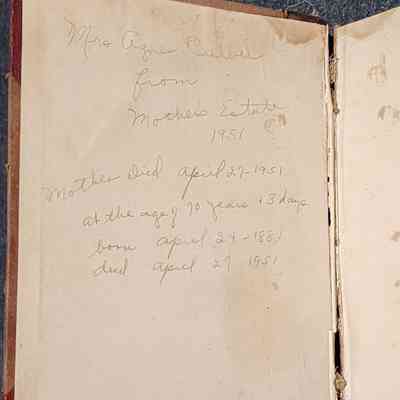 Mrs Agnes
from
Mothers Estate
1951
Mother Died april 27-1951
at the age of 70 years + 3 days
born april 24-1881
died april 27 1951